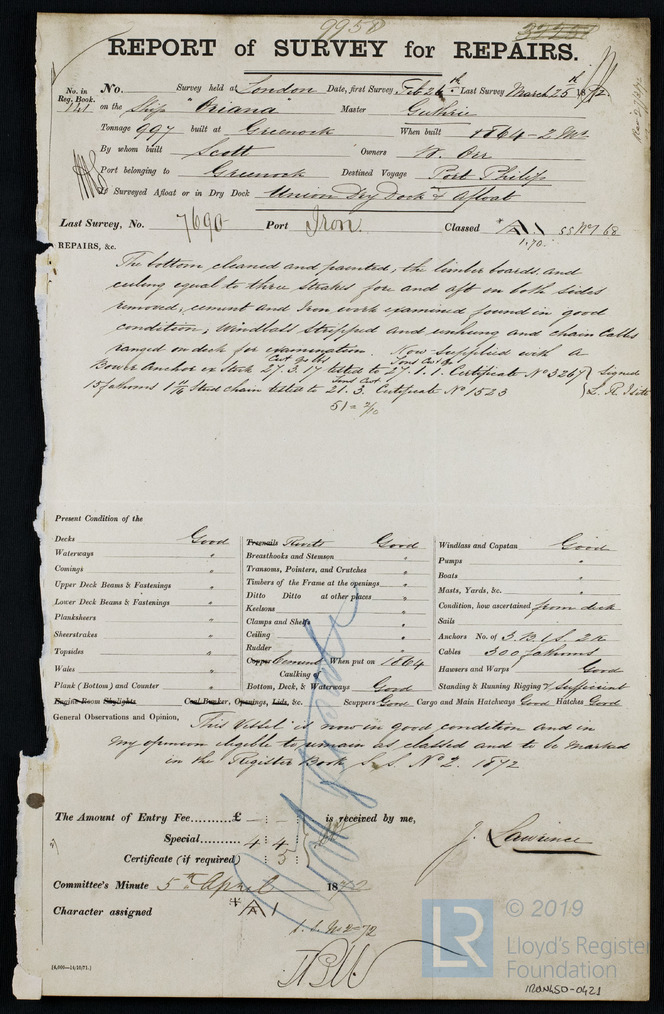 9958
REPORT of SURVEY for REPAIRS.
No. in Reg. Book. 141
No. Survey held at London Date, first Survey Feb 26th Last Survey March 25th 1872
on the Ship "Oriana" Master Guthrie
Tonnage 997 built at Greenock When built 1864 - 2 Ms
By whom built Scott Owners W. Orr
Port belonging to Greenock Destined Voyage Port Philip
If Surveyed Afloat or in Dry Dock Union Dry Dock & Afloat
Last Survey, No. 7690 Port Iron Classed A 1 SS No 1 68
1.70.
REPAIRS, &c.
The bottom cleaned and painted, the limber boards and
ceiling equal to three strakes for and aft on both sides
removed, cement and Iron work examined found in good
condition, Windlass stripped and unhung and chain Cables
ranged on deck for examination. Now supplied with a
Bower Anchor ex Stock 27.3.17 tested to 27.1.1. Certificate No 3267 Signed
15 fathoms 1 11/16 Stud chain tested to 51.3. Certificate No 1523 L. R. Isitt
51 = 2/10
Present Condition of the
Decks Good
Waterways "
Comings "
Upper Deck Beams & Fastenings "
Lower Deck Beams & Fastenings "
Planksheers "
Sheerstrakes "
Topsides "
Wales "
Plank (Bottom) and Counter "
Engine Room Skylights Coal Bunker, Openings, Lids, &c.
Treenails Rivets Good
Breasthooks and Stemson "
Transoms, Pointers, and Crutches "
Timbers of the Frame at the openings "
Ditto Ditto at other places "
Keelsons "
Clamps and Shelfs "
Ceiling "
Rudder "
Copper Cement When put on 1864
Caulking
Bottom, Deck, & Waterways Good
Windlass and Capstan Good
Pumps "
Boats "
Masts, Yards, &c. "
Condition, how ascertained from deck
Sails
Anchors No. of 3 B. 1 S. 2 K
Cables 300 fathoms
Hawsers and Warps Good
Standing & Running Rigging & Sufficient
Scuppers Good Cargo and Main Hatchways Good Hatches Good
General Observations and Opinion,
This Vessel is now in good condition and in
my opinion eligible to remain as classed and to be marked
in the Register Book S.S. No 2. 1872
The Amount of Entry Fee £ is received by me,
Special 4 : 4 :
Certificate (if required) 5
J. Lawrence
Committee's Minute 5th April 1872
Character assigned A 1
S.S. No 2-72
[6,000—14/10/71.]
LR
© 2019
Lloyd's Register
Foundation
IRON450-0421